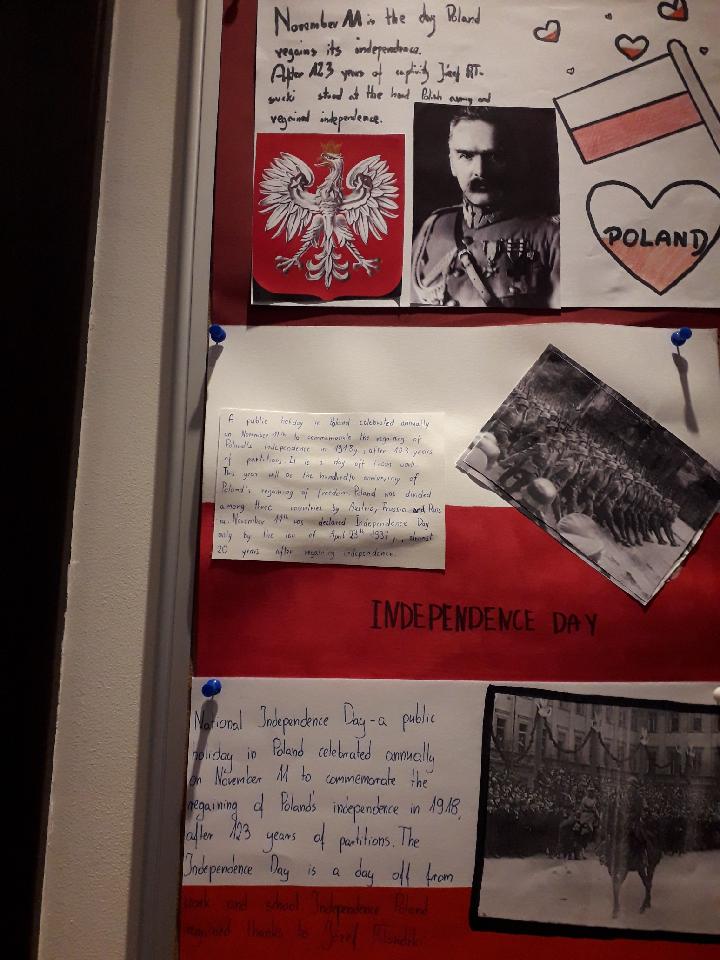 November 11 is the day Poland
regains its independence.
After 123 years of captivity Józef Pił-
sucki stood at the head Polish army and
regained independence.
POLAND
A public holiday in Poland celebrated annually
on November 11th to commemorate the regaining of
Poland's independence in 1918y, after 123 years
of partitions. It is a day off from work.
This year will be the hundredth anniversary of
Poland's regaining of freedom. Poland was divided
among three countries by Austria, Prussia and Rus
sia. November 11th was declared Independence Day
only by the law of April 23th 1937y, almost
20 years after regaining independence.
INDEPENDENCE DAY
National Independence Day - a public
holiday in Poland celebrated annually
on November 11 to commemorate the
regaining of Poland's independence in 1918,
after 123 years of partitions. The
Independence Day is a day off from
work and school. Independence Poland
regained thanks to Józef Piłsudski